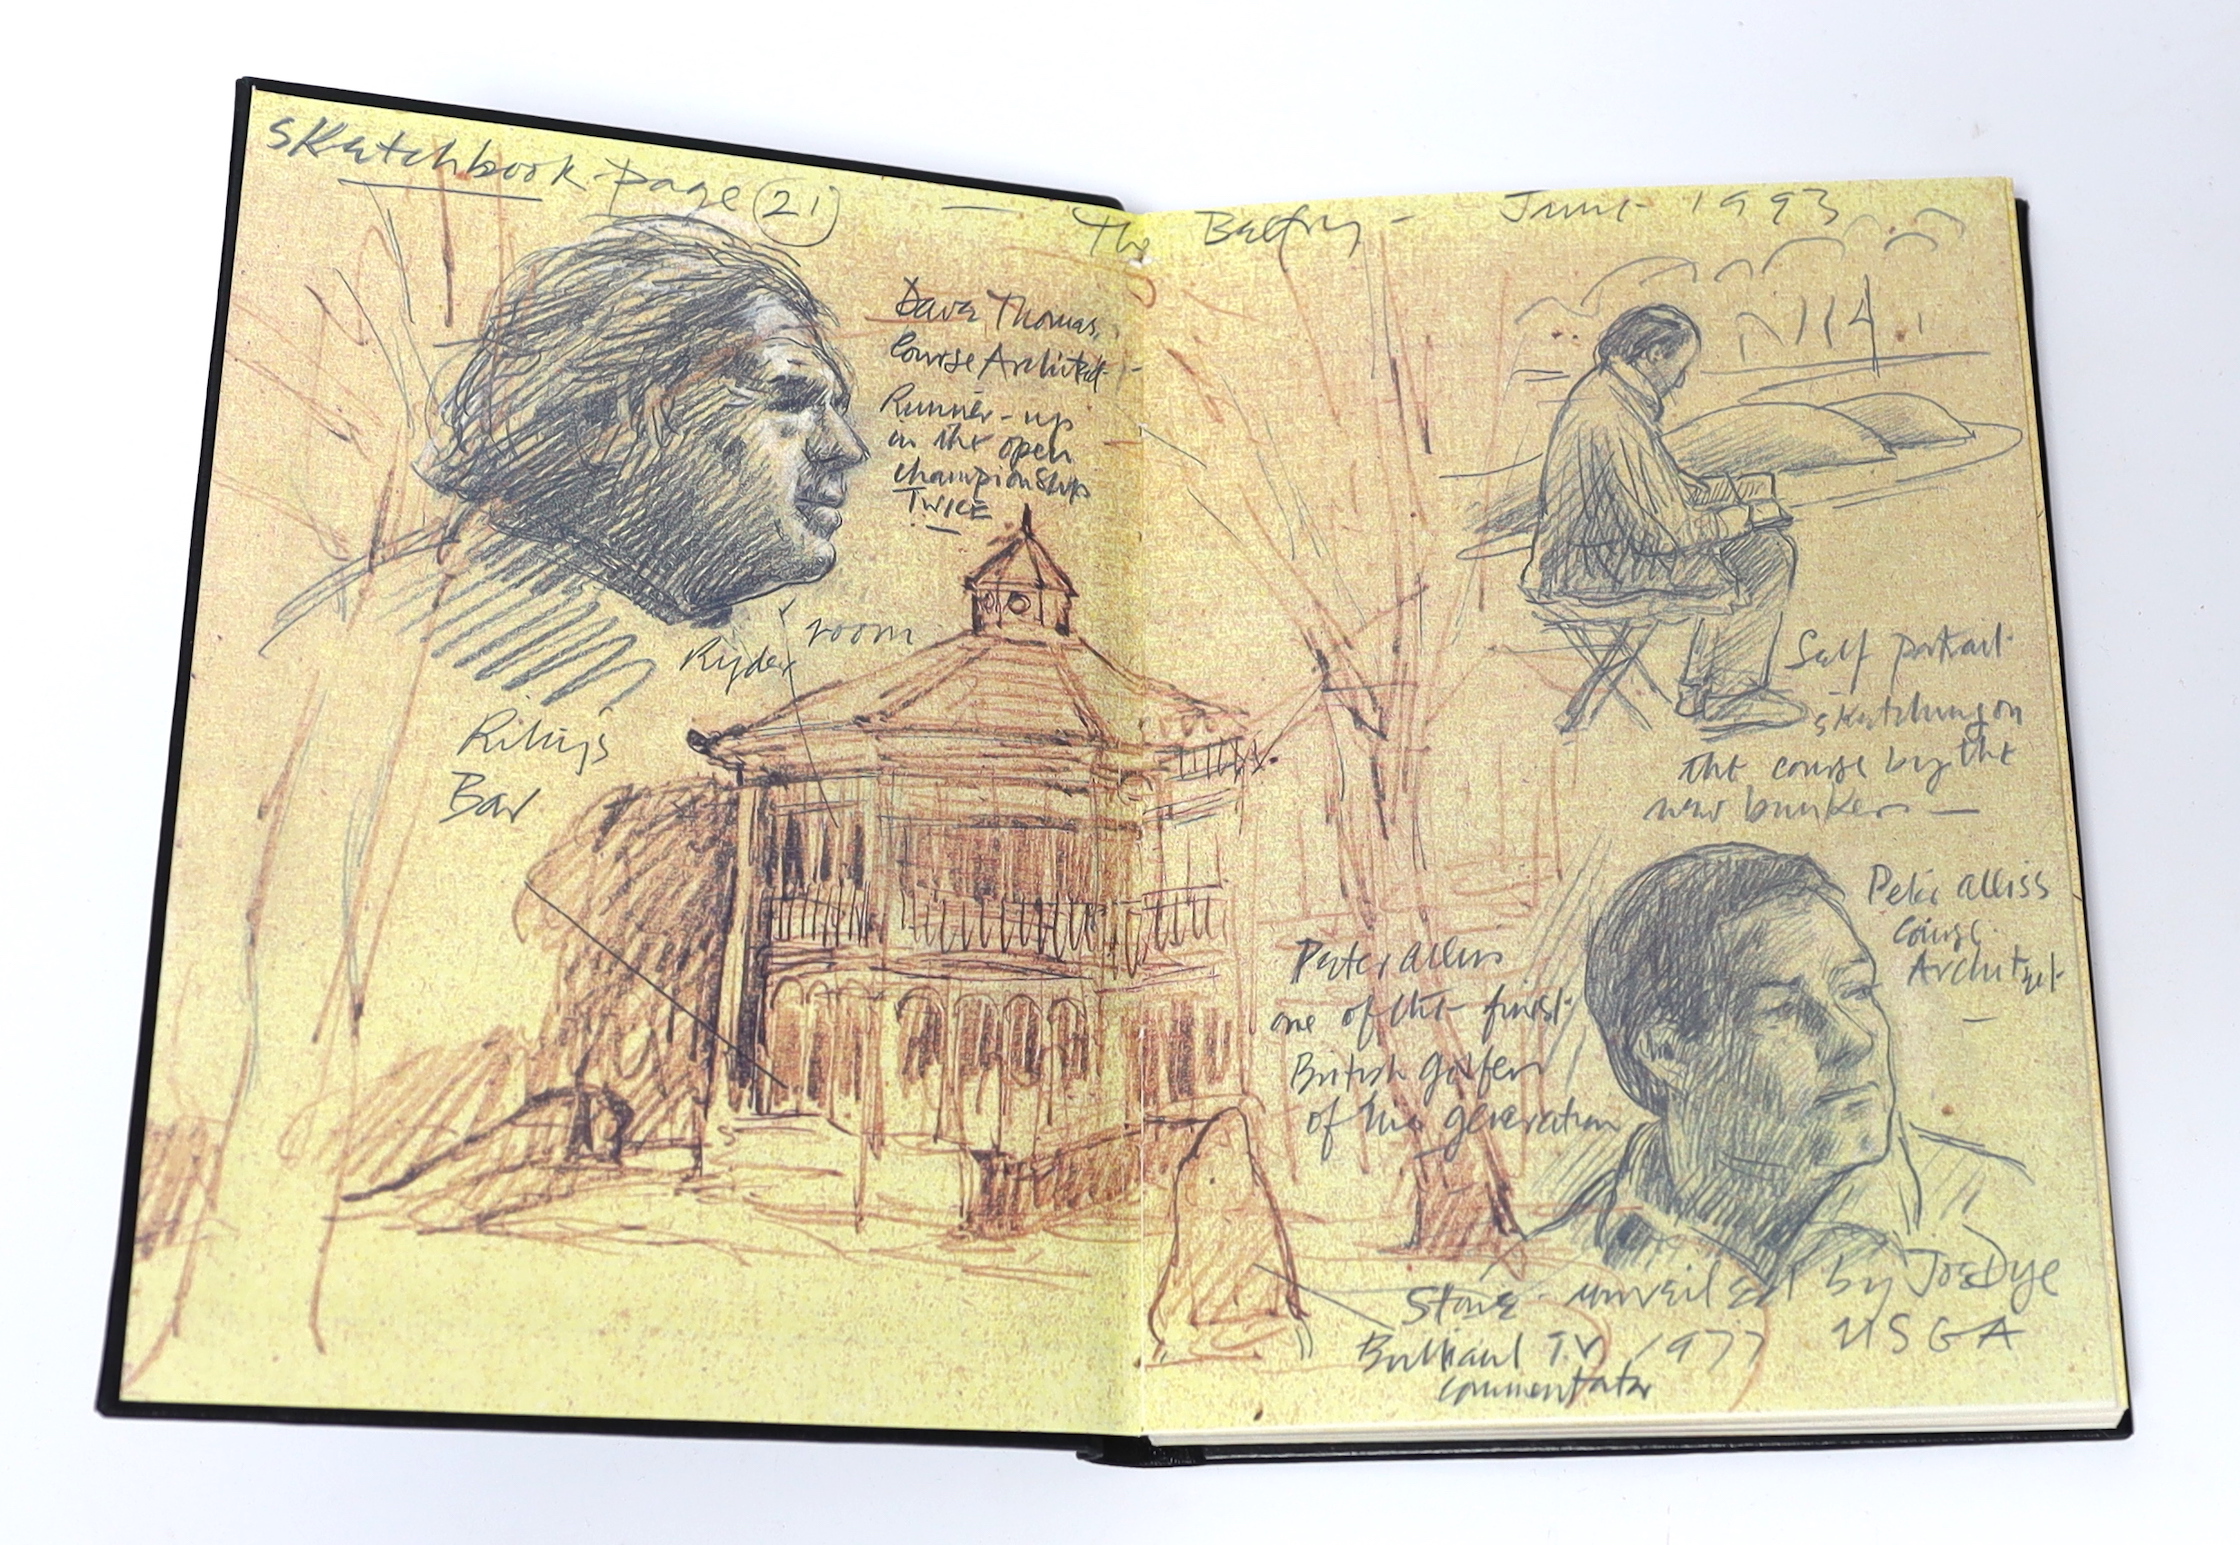 Sketchbook page 21 — The Belfry - June 1993
Dave Thomas,
Course Architect -
Runner-up
in the open
championship
TWICE
Ryder room
Bar
Self portrait
sketching on
the course by the
new bunkers —
Peter alliss
Course
Architect
Peter alliss
one of the finest
British golfers
of his generation
Stone - unveiled by Joe Dye
1977 USGA
Brilliant T.V
commentator